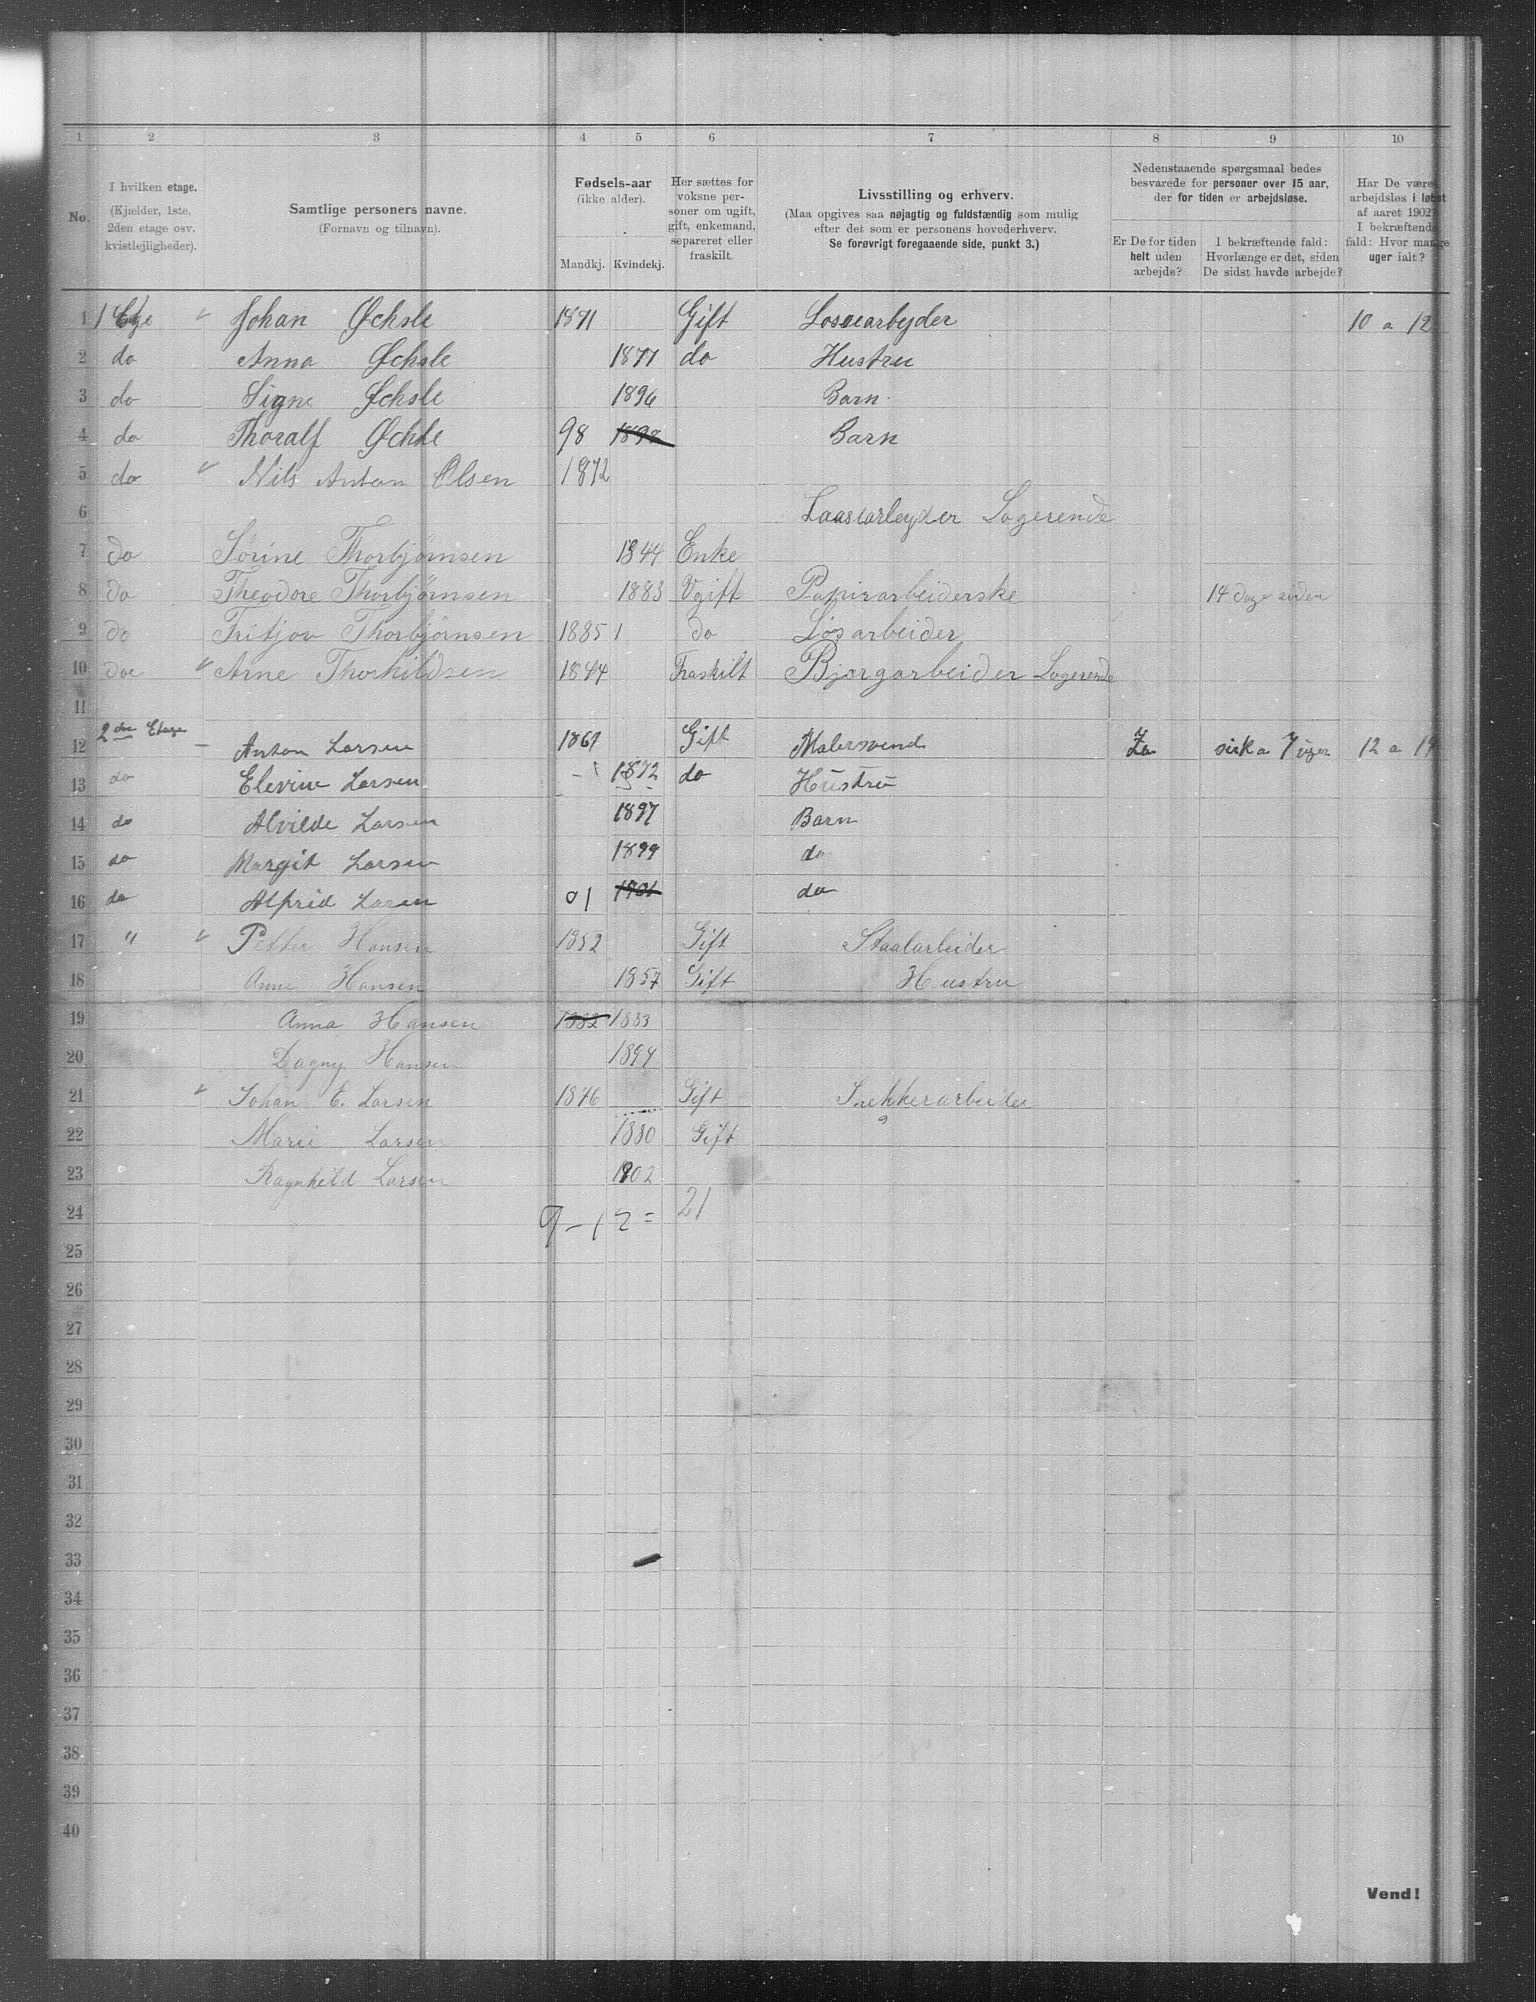 1 2 3 4 5 6 7 8 9 10
No.
I hvilken etage.
(Kjælder, 1ste,
2den etage osv.
kvistlejligheder).
Samtlige personers navne.
(Fornavn og tilnavn).
Fødsels-aar
(ikke alder).
Mandkj. Kvindekj.
Her sættes for
voksne per-
soner om ugift,
gift, enkemand,
separeret eller
fraskilt.
Livsstilling og erhverv.
(Maa opgives saa nøjagtig og fuldstændig som mulig
efter det som er personens hovederhverv.
Se forøvrigt foregaaende side, punkt 3.)
Nedenstaaende spørgsmaal bedes
besvarede for personer over 15 aar,
der for tiden er arbejdsløse.
Er De for tiden
helt uden
arbejde?
I bekræftende fald:
Hvorlænge er det, siden
De sidst havde arbejde?
Har De været
arbejdsløs i løbet
af aaret 1902?
I bekræftende
fald: Hvor mange
uger ialt?
1 1 Etge Johan Øchsle 1871 Gift Losearbejder 10 a 12
2 do Anna Øchsle 1877 do Hustru
3 do Signe Øchsle 1896 Barn
4 do Thoralf Øchsle 98 1898 Barn
5 do Nils Anton Olsen 1872
6 Laasearbeyder Logerende
7 do Sørine Thorbjørnsen 1844 Enke
8 do Theodore Thorbjørnsen 1883 Ugift Papirarbeiderske 14 dage siden
9 do Fritjov Thorbjørnsen 1885 1 do Løsarbeider
10 doe Arne Thorkildsen 1844 Fraskilt Bjærgarbeider Logerende
11
12 2den Etage Anton Larsen 1861 Gift Malersvend Ja sirka 7 uger 12 a 14
13 do Elevine Larsen 1872 do Hustru
14 do Alvilde Larsen 1897 Barn
15 do Margit Larsen 1899 do
16 do Alfrid Larsen 01 1901 do
17 " Petter Hansen 1852 Gift Staalarbeider
18 Anne Hansen 1857 Gift Hustru
19 Anna Hansen 1882 1883
20 Dagny Hansen 1894
21 Johan E. Larsen 1876 Gift Snekkerarbeider
22 Marie Larsen 1880 Gift
23 Ragnhild Larsen 1902
24 9 - 12 = 21
25
26
27
28
29
30
31
32
33
34
35
36
37
38
39
40
Vend!